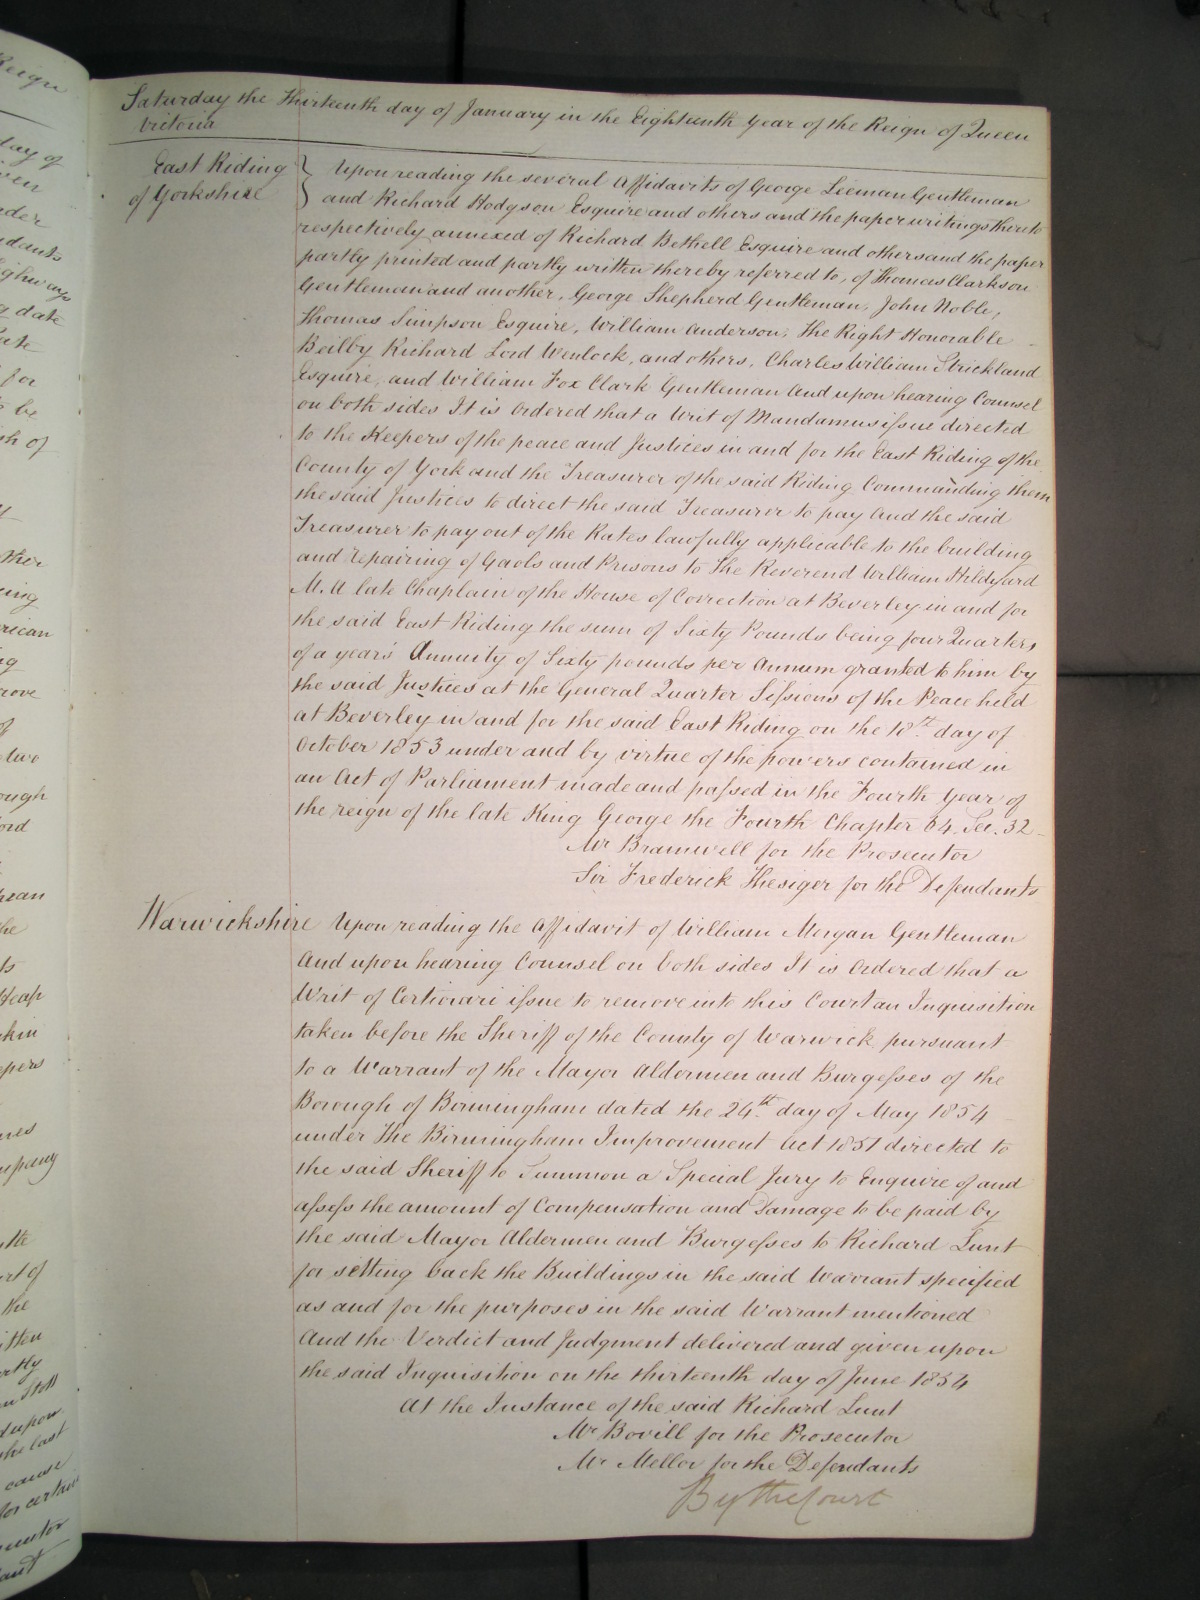 Saturday the Thirteenth day of January in the Eighteenth Year of the Reign of Queen
Victoria
East Riding
of Yorkshire
Upon reading the several Affidavits of George Leeman Gentleman
and Richard Hodgson Esquire and others and the paper writings thereto
respectively annexed of Richard Bethell Esquire and others and the paper
partly printed and partly written thereby referred to, of Thomas Clarkson
Gentleman and another, George Shepherd Gentleman, John Noble,
Thomas Simpson Esquire, William Anderson, The Right Honorable
Beilby Richard Lord Wenlock, and others, Charles William Strickland
Esquire, and William Fox Clark Gentleman And upon hearing Counsel
on both sides It is Ordered that a Writ of Mandamus issue directed
to the Keepers of the peace and Justices in and for the East Riding of the
County of York and the Treasurer of the said Riding Commanding them
the said Justices to direct the said Treasurer to pay And the said
Treasurer to pay out of the Rates lawfully applicable to the building
and repairing of Gaols and Prisons to The Reverend William Hildyard
M.A late Chaplain of the House of Correction at Beverley in and for
the said East Riding the sum of Sixty Pounds being four Quarters
of a year's Annuity of Sixty pounds per Annum granted to him by
the said Justices at the General Quarter Sessions of the Peace held
at Beverley in and for the said East Riding on the 18th day of
October 1853 under and by virtue of the powers contained in
an Act of Parliament made and passed in the Fourth Year of
the reign of the late King George the Fourth Chapter 64. Sec. 32
Mr Bramwell for the Prosecutor
Sir Frederick Thesiger for the Defendants
Warwickshire
Upon reading the Affidavit of William Morgan Gentleman
And upon hearing Counsel on both sides It is Ordered that a
Writ of Certiorari issue to remove into this Court an Inquisition
taken before the Sheriff of the County of Warwick pursuant
to a Warrant of the Mayor Aldermen and Burgesses of the
Borough of Birmingham dated the 24th day of May 1854
under The Birmingham Improvement Act 1851 directed to
the said Sheriff to Summon a Special Jury to Enquire of and
assess the amount of Compensation and Damage to be paid by
the said Mayor Aldermen and Burgesses to Richard Lunt
for setting back the Buildings in the said Warrant specified
as and for the purposes in the said Warrant mentioned
And the Verdict and Judgment delivered and given upon
the said Inquisition on the thirteenth day of June 1854
At the Instance of the said Richard Lunt
Mr Bovill for the Prosecutor
Mr Mellor for the Defendants
By the Court